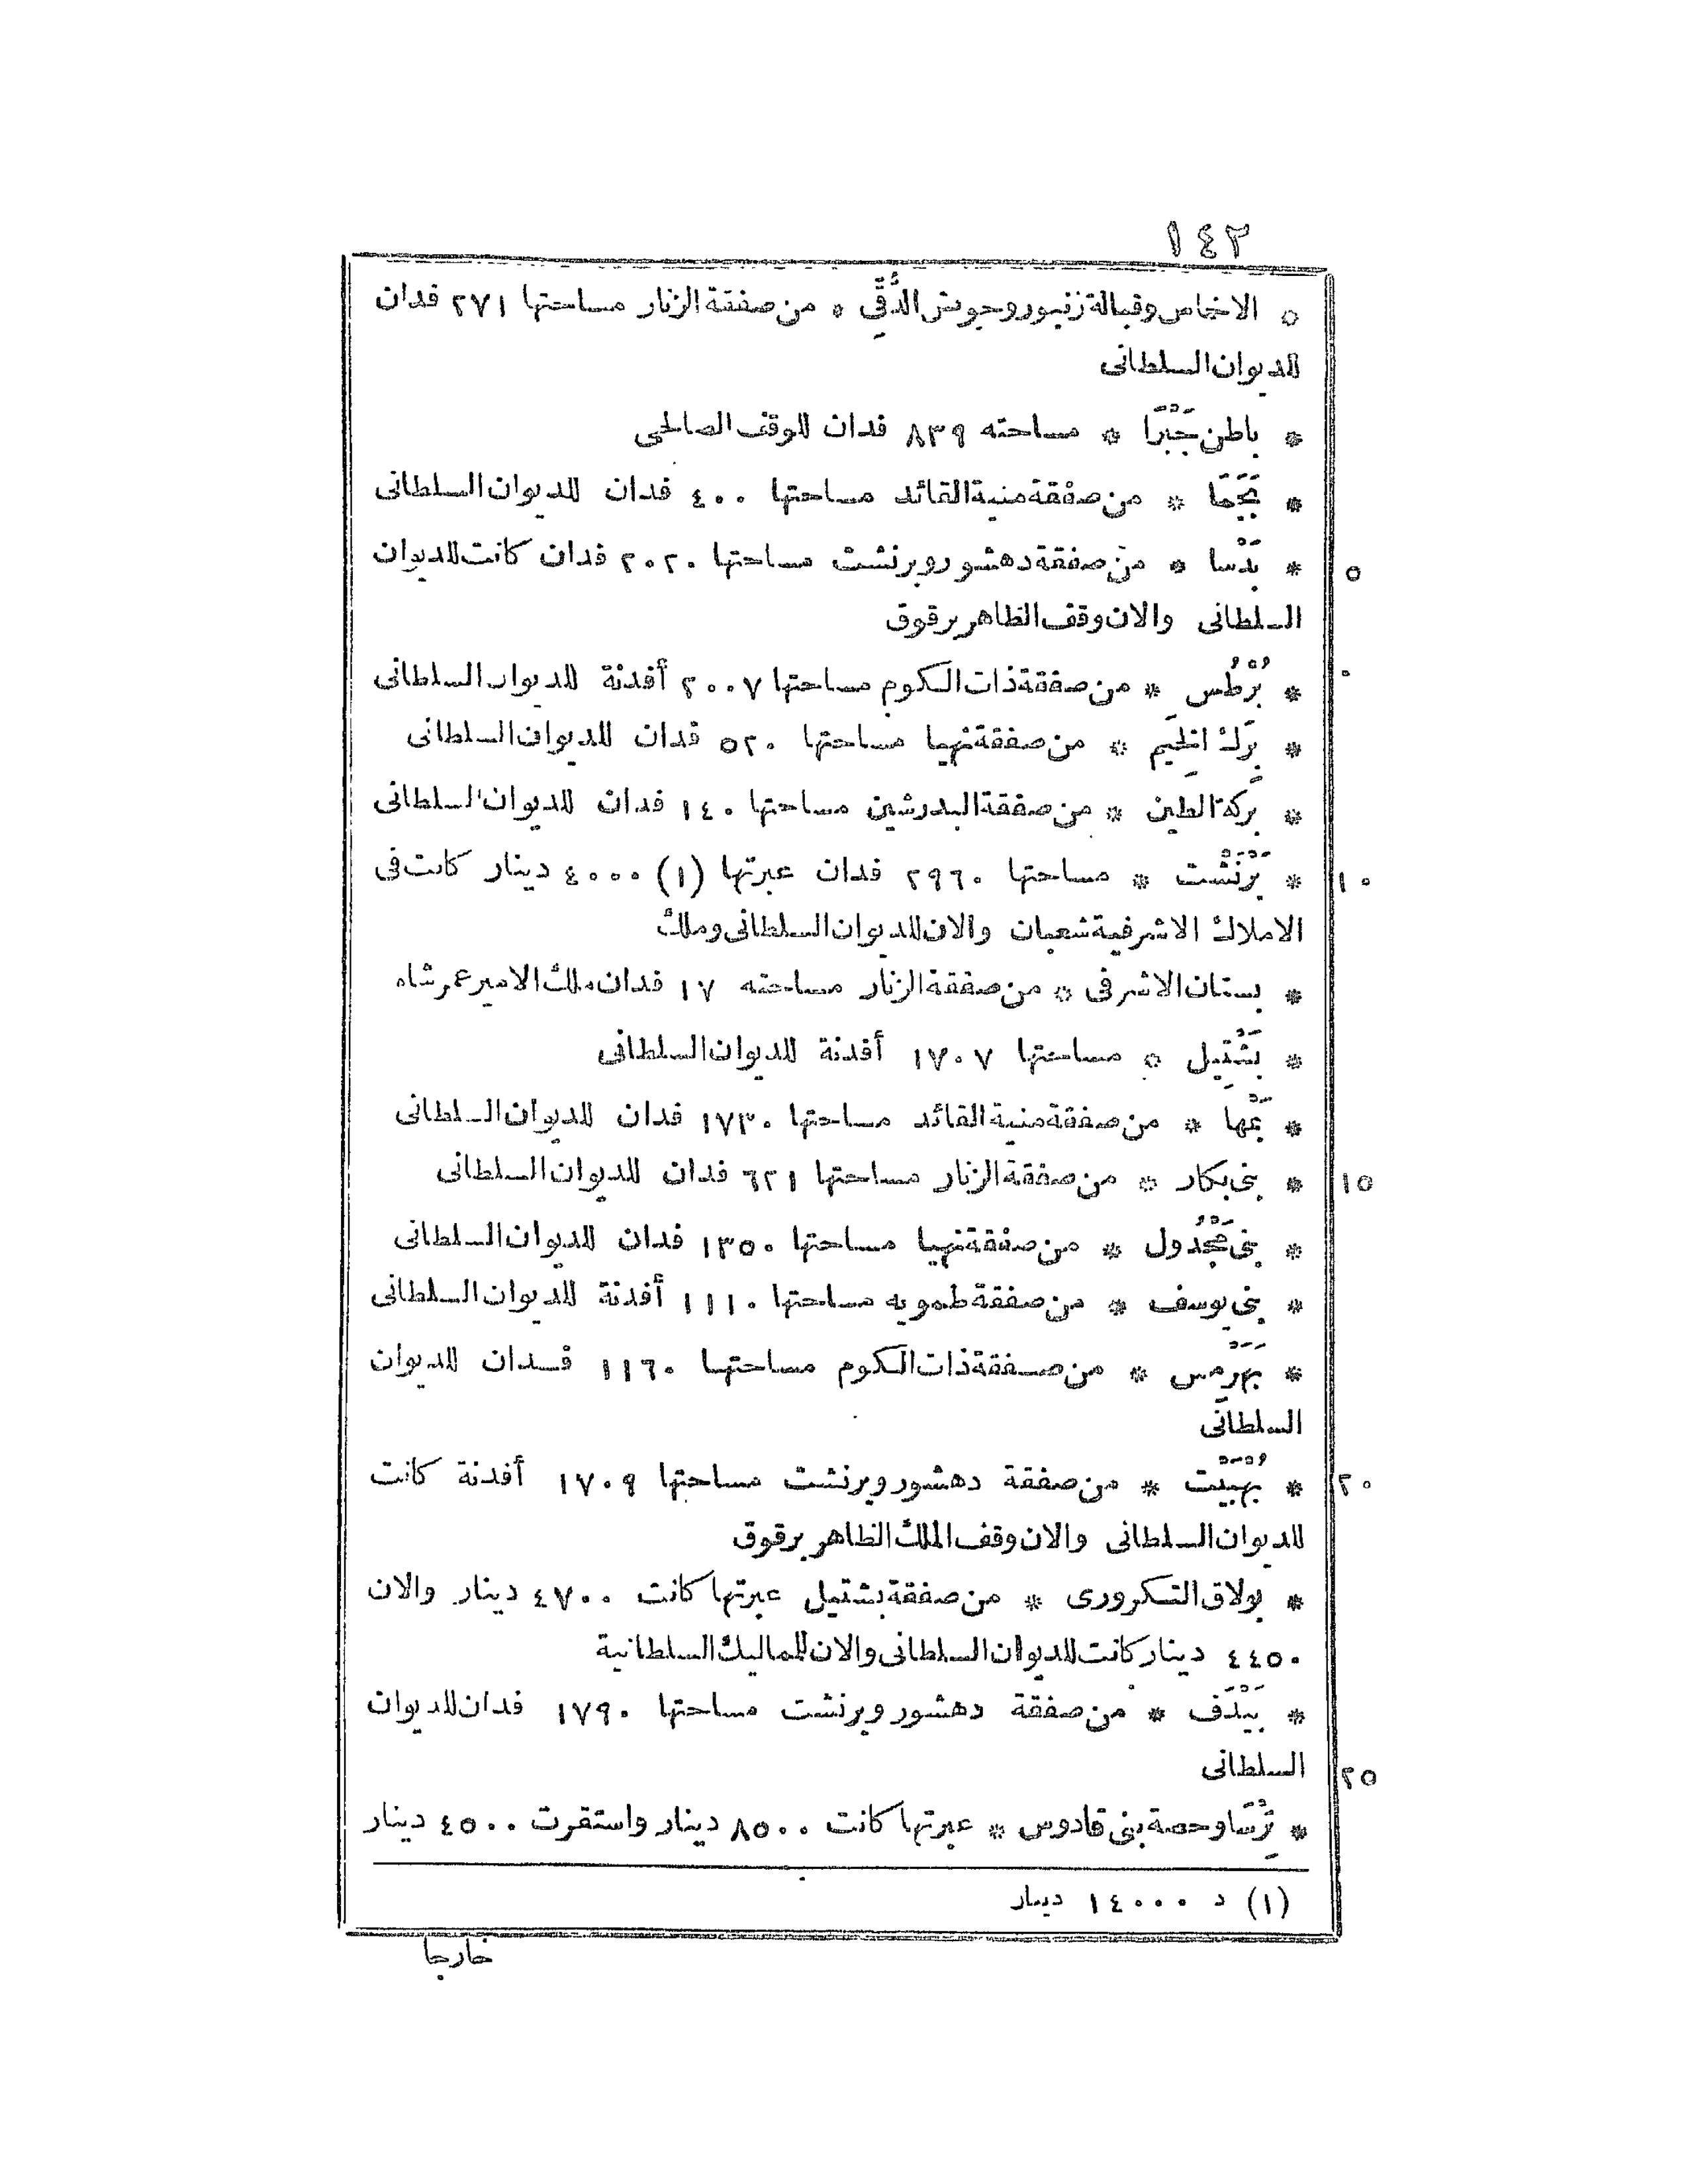 ١٤٢
* الاخاص وقبالة زنبور وحوش الدُّقِّي * من صفقة الزنار مساحتها ٢٧١ فدان
للديوان السلطانى
* باطن جَبْرَا * مساحته ٨٣٩ فدان للوقف الصالحى
* من صفقة منية القائد مساحتها ٤٠٠ فدان للديوان السلطانى
٥ * بَدْسا * من صفقة دهشور وبرنشت مساحتها ٢٠٢٠ فدان كانت للديوان
السلطانى والان وقف الظاهر برقوق
* بُرْطُس * من صفقة ذات الكوم مساحتها ٢٠٠٧ أفدنة للديوان السلطانى
* بِرَك الخِيَم * من صفقة نهيا مساحتها ٥٢٠ فدان للديوان السلطانى
* بركة الطين * من صفقة البدرشين مساحتها ١٤٠ فدان للديوان السلطانى
١٠ * بَرْنَشْت * مساحتها ٢٩٦٠ فدان عبرتها (١) ٤٠٠٠ دينار كانت فى
الاملاك الاشرفية شعبان والان للديوان السلطانى وملك
* بستان الاشرفى * من صفقة الزنار مساحته ١٧ فدان ملك الامير عمر شاه
* بَشْتِيل * مساحتها ١٧٠٧ أفدنة للديوان السلطانى
* بَمْها * من صفقة منية القائد مساحتها ١٧٣٠ فدان للديوان السلطانى
١٥ * بنى بكار * من صفقة الزنار مساحتها ٦٢١ فدان للديوان السلطانى
* بنى مَجْدُول * من صفقة نهيا مساحتها ١٣٥٠ فدان للديوان السلطانى
* بنى يوسف * من صفقة طمويه مساحتها ١١١٠ أفدنة للديوان السلطانى
* بَهَرْمِس * من صفقة ذات الكوم مساحتها ١١٦٠ فدان للديوان
السلطانى
٢٠ * بُهْبَيْت * من صفقة دهشور وبرنشت مساحتها ١٧٠٩ أفدنة كانت
للديوان السلطانى والان وقف الملك الظاهر برقوق
* بولاق التكرورى * من صفقة بشتيل عبرتها كانت ٤٧٠٠ دينار والان
٤٤٥٠ دينار كانت للديوان السلطانى والان للماليك السلطانية
* بَيْدَف * من صفقة دهشور وبرنشت مساحتها ١٧٩٠ فدان للديوان
٢٥ السلطانى
* تِرْسَا وحصة بنى قادوس * عبرتها كانت ٨٥٠٠ دينار واستقرت ٤٥٠٠ دينار
(١) د ١٤٠٠٠ دينار
خارجا